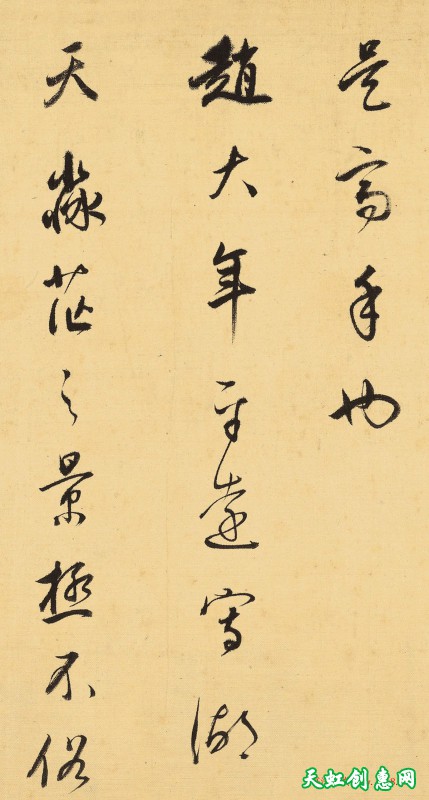 是高手也
趙大年平遠寫湖
天淼茫之景極不俗
天虹创惠网